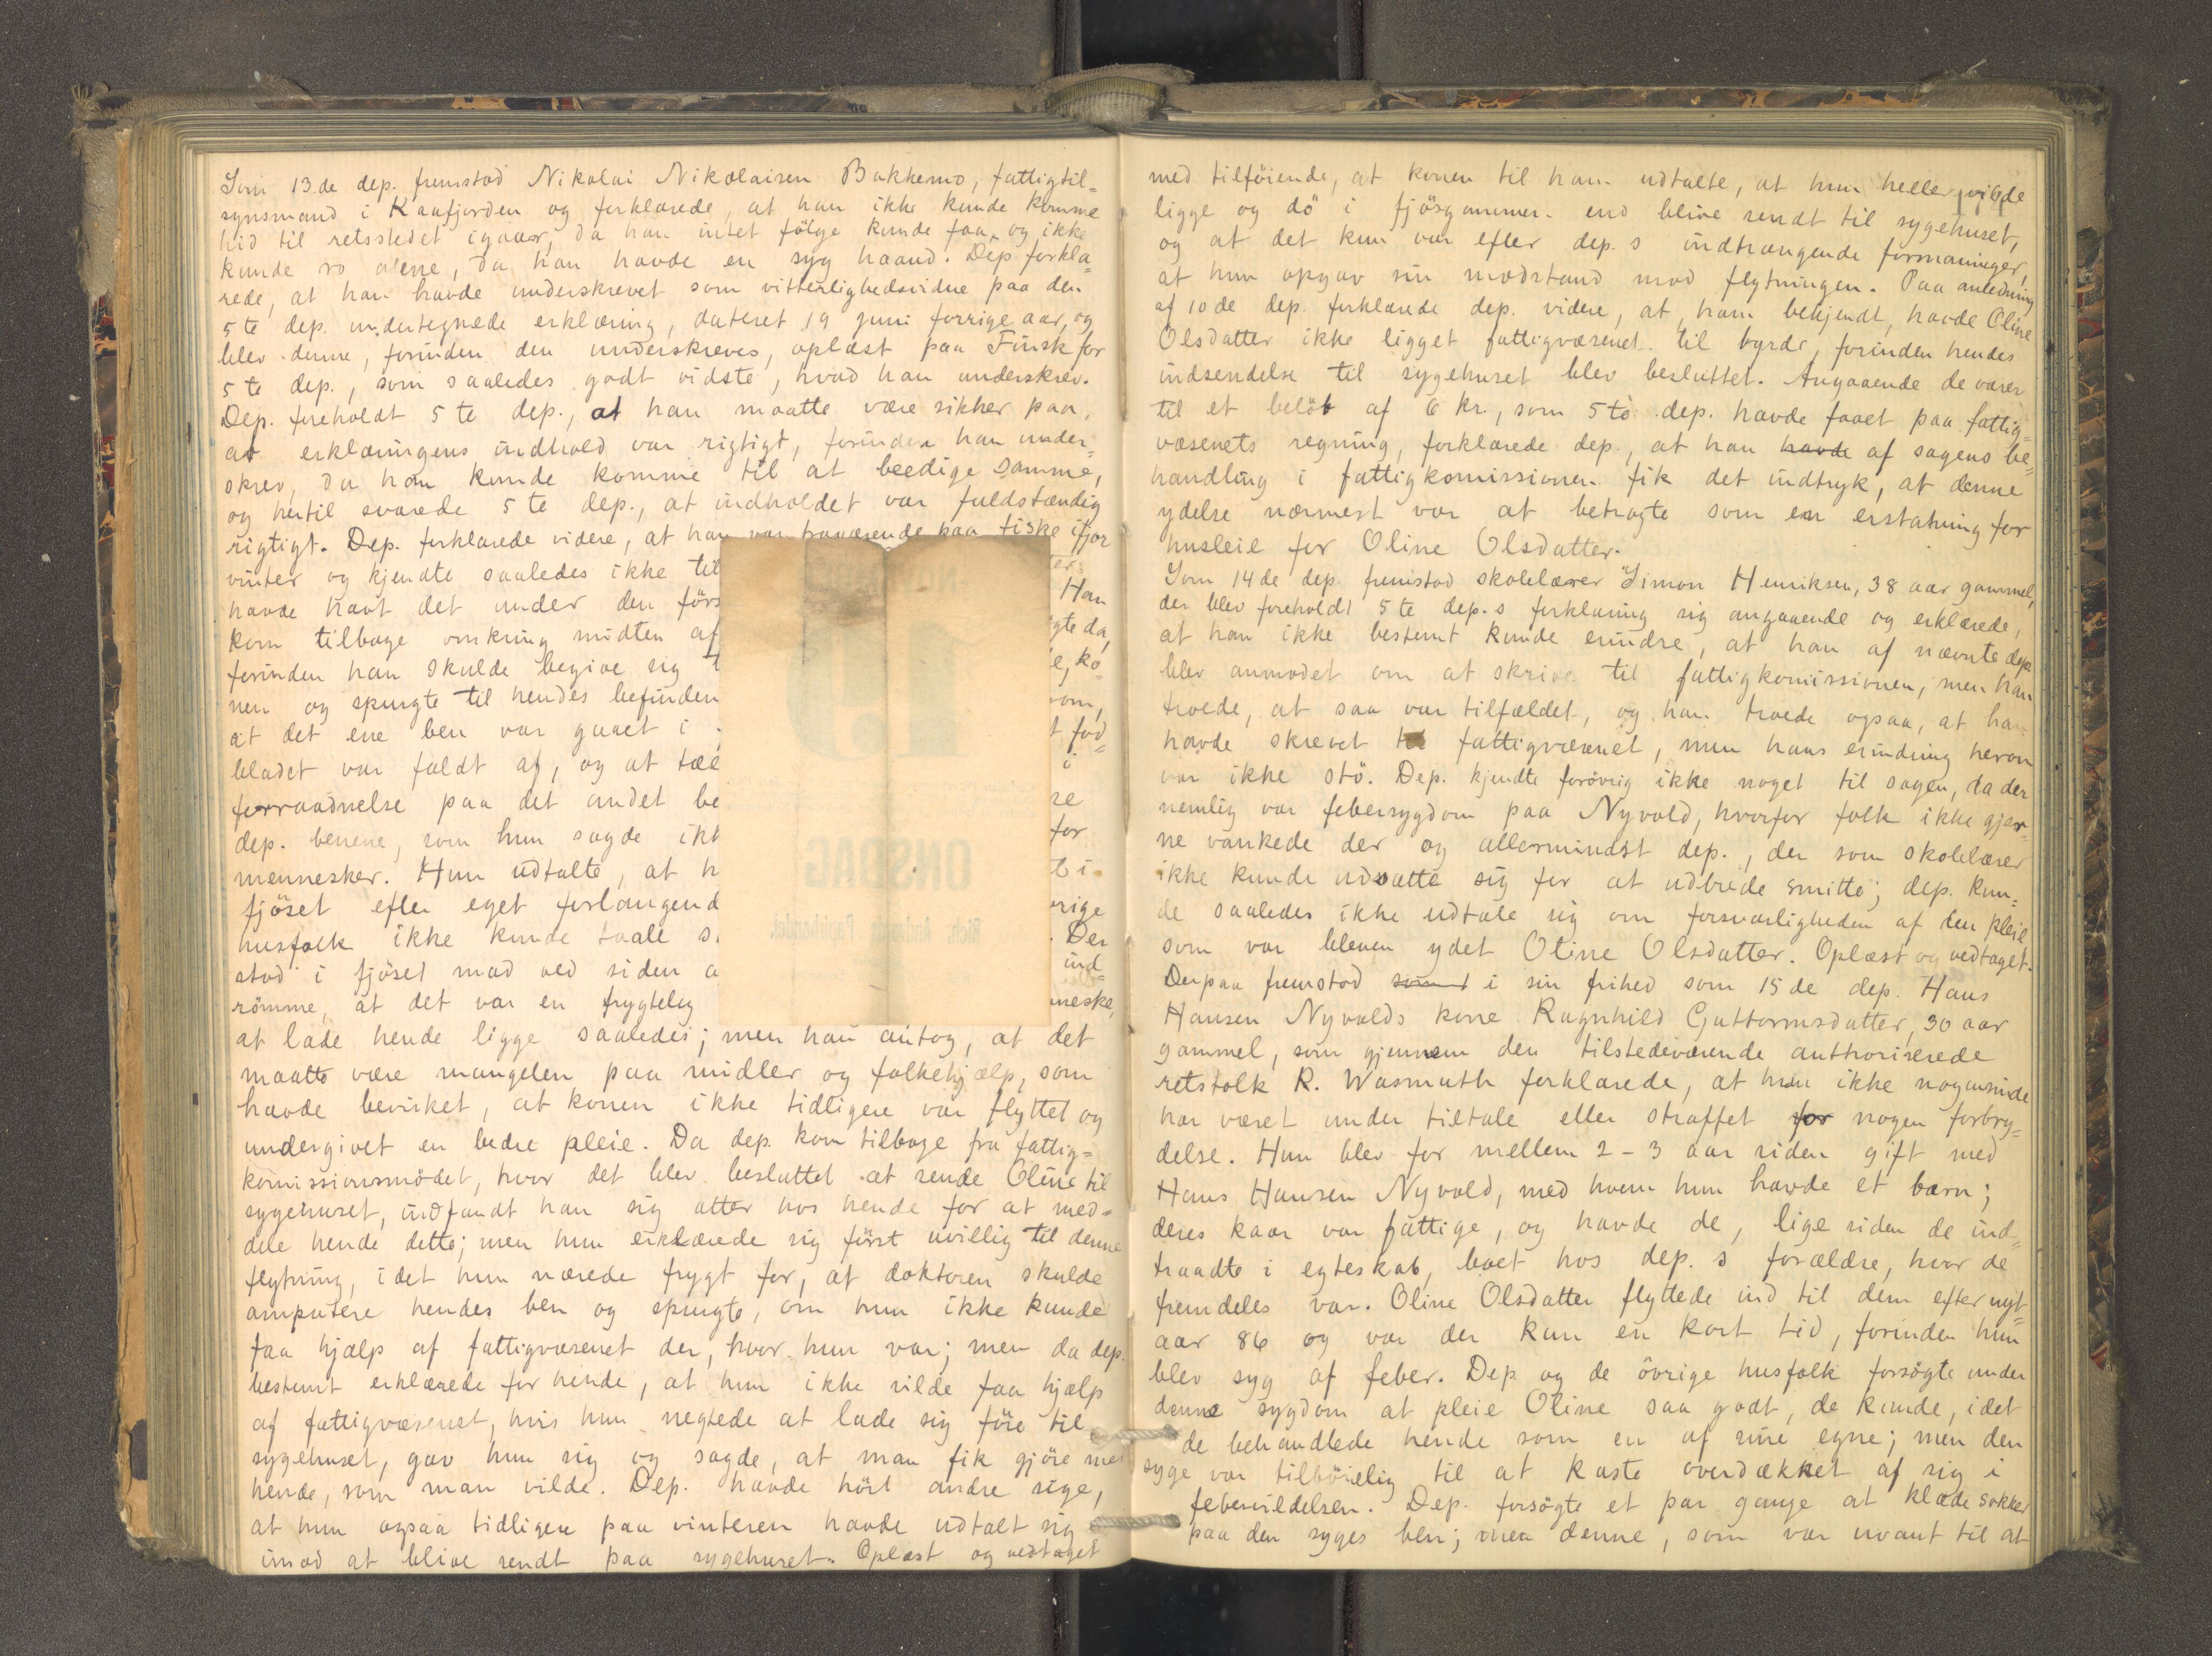 Som 13.de dep. fremstod Nikolai Nikolaisen Bakkemo, fattigtil=
synsmand i Kaafjorden og forklarede, at han ikke kunde komme
hid til retsstedet igaar, da han intet fölge kunde faa, og ikke
kunde ro alene, da han havde en syg haand. Dep. forkla=
rede, at han havde underskrevet som vitterlighedsvidne paa den
5te dep. undertegnede erklæring, dateret 19 juni forrige aar, og
blev denne, forinden den underskreves, oplæst paa Finsk for
5te dep., som saaledes godt vidste, hvad han underskrev.
Dep. foreholdt 5te dep., at han maatte være sikker paa,
at erklæringens indhold var rigtigt, forinden han under=
skrev, da han kunde komme til at beedige samme,
og hertil svarede 5te dep., at indholdet var fuldstændig
rigtigt. Dep. forklarede videre, at han var fraværende paa fiske ifjor
vinter og kjendte saaledes ikke til
havde havt det under den förs Han
kom tilbage omkring midten af gte da,
forinden han skulde begive sig t e, ko=
nen og spurgte til hendes befinden som,
at det ene ben var gaaet i t fod=
bladet var faldt af, og at tæe i
forraadnelse paa det andet be re
dep. benene, som hun sagde ikk for
mennesker. Hun udtalte, at h t i
fjöset efter eget forlangend rige
husfolk ikke kunde taale s. Der
stod i fjöset mad ved siden a ind=
römme, at det var en frygtelig meske,
at lade hende ligge saaledes; men han antog, at det
maatte være mangelen paa midler og folkehjælp, som
havde bevirket, at konen ikke tidligere var flyttet og
undergivet en bedre pleie. Da dep. kom tilbage fra fattig=
komissionsmödet, hvor det blev besluttet at sende Oline til
sygehuset, indfandt han sig atter hos hende for at med=
dele hende dette; men hun erklærede sig först uvillig til denne
flytning, idet hun nærede frygt for, at doktoren skulde
amputere hendes ben og spurgte, om hun ikke kunde
faa hjælp af fattigvæsenet der, hvor hun var; men da dep.
bestemt erklærede for hende, at hun ikke vilde faa hjælp
af fattigvæsenet, hvis hun negtede at lade sig före til
sygehuset, gav hun sig og sagde, at man fik gjöre med
hende, som man vilde. Dep. havde hört andre sige,
at hun ogsaa tidligere paa vinteren havde udtalt sig
imod at blive sendt paa sygehuset. Oplæst og vedtaget
med tilföiende, at konen til ham udtalte, at hun heller vilde
ligge og dö i fjösgammen end blive sendt til sygehuset,
og at det kun var efter dep.s indtrængende formaninger,
at hun opgav sin modstand mod flytningen. Paa anledning
af 10de dep. forklarede dep. videre, at, ham bekjendt, havde Oline
Olsdatter ikke ligget fattigvæsenet til byrde, forinden hendes
indsendelse til sygehuset blev besluttet. Angaaende de varer
til et belöb af 6 kr., som 5te dep. havde faaet paa fattig=
væsenets regning, forklarede dep., at han havde af sagens be=
handling i fattigkomissionen fik det indtryk, at denne
ydelse nærmest var at betragte som en erstatning for
husleie for Oline Olsdatter.
Som 14de dep. fremstod skolelærer Simon Henriksen, 38 aar gammel,
der blev foreholdt 5te dep.s forklaring sig angaaende og erklærede,
at han ikke bestemt kunde erindre, at han af nævnte dep.
blev anmodet om at skrive til fattigkomissionen, men han
troede, at saa var tilfældet, og han troede ogsaa, at han
havde skrevet til fattigvæsenet, men hans erindring herom
var ikke stö. Dep. kjendte forövrig ikke noget til sagen, da der
nemlig var febersygdom paa Nyvold, hvorfor folk ikke gjer=
ne vankede der og allermindst dep., der som skolelærer
ikke kunde udsætte sig for at udbrede smitte; dep. kun=
de saaledes ikke udtale sig om forsvarligheden af den pleie
som var bleven ydet Oline Olsdatter. Oplæst og vedtaget.
Derpaa fremstod som 1 i sin frihed som 15de dep. Hans
Hansen Nyvolds kone Ragnhild Guttormsdatter, 30 aar
gammel, som gjennem den tilstedeværende authoriserede
retstolk R. Wasmuth forklarede, at hun ikke nogensinde
har været under tiltale eller straffet for nogen forbry=
delse. Hun blev for mellem 2-3 aar siden gift med
Hans Hansen Nyvold, med hvem hun havde et barn;
deres kaar var fattige, og havde de, lige siden de ind=
traadte i egteskab, boet hos dep.s forældre, hvor de
fremdeles var. Oline Olsdatter flyttede ind til dem efter nyt=
aar 86 og var der kun en kort tid, forinden hun
blev syg af feber. Dep. og de övrige husfolk forsögte under
denne sygdom at pleie Oline saa godt, de kunde, idet
de behandlede hende som en af sine egne; men den
syge var tilböielig til at kaste overdækket af sig i
febervildelsen. Dep. forsögte et par gange at klæde sokker
paa den syges ben; men denne, som var uvant til at
ONSDAG